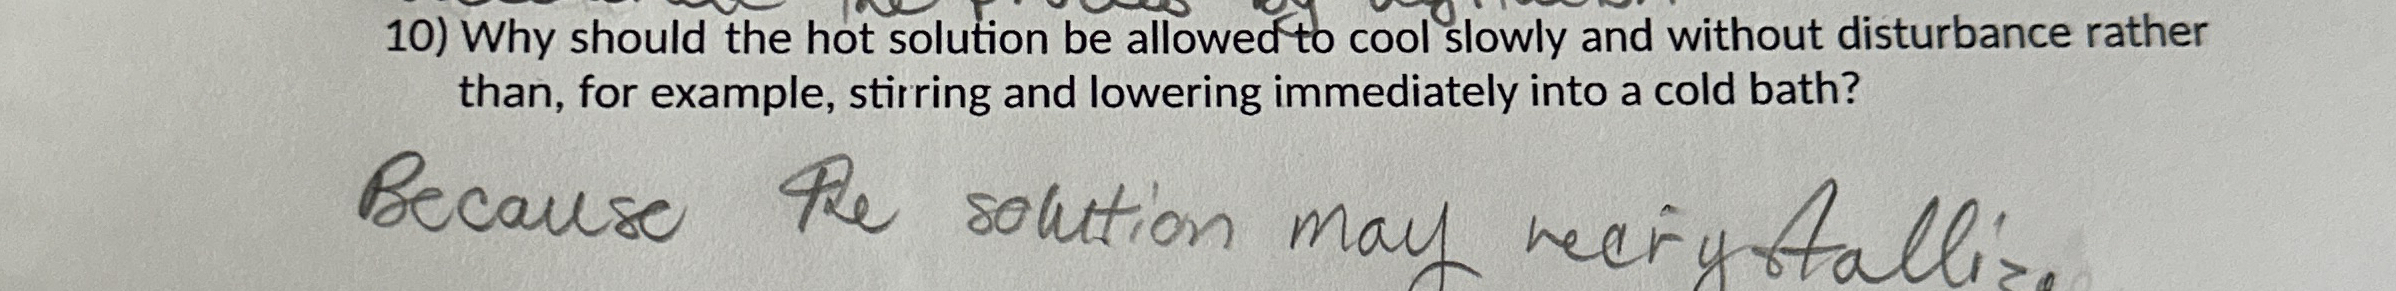 10) Why should the hot solution be allowed to cool slowly and without disturbance rather
than, for example, stirring and lowering immediately into a cold bath?
Because the solution may recrystallize